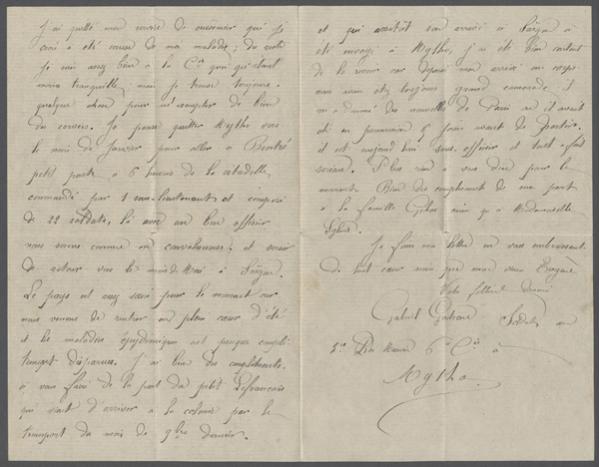 J'ai quitté mon service de cuisinier qui je
crois a été cause de ma maladie; du reste
je suis assez bien à la Cie quoi qu'étant
moins tranquille, mais je trouve toujours
quelque chose pour m'exempter de bien
du service. Je pense quitter Mytho vers
le mois de Janvier pour aller à Bentré
petit poste à 6 heures de la citadelle
commandé par 1 sous-lieutenant et composé
de 22 soldats, là avec un bon officier
nous serons comme en convalescence; et
de retour vers le mois de Mai à Saïgon.
Le pays est assez sain pour le moment car
nous venons de rentrer en plein cœur d'été
et les maladies épidémiques ont presque complè-
tement disparues. J'ai bien des compliments
à vous faire de la part du petit Lefrançais
qui vient d'arriver à la colonie par le
transport du mois de 9bre dernier.
et qui aussitôt son arrivé à Saïgon a
été envoyé à Mytho, j'ai été bien content
de le revoir car depuis mon arrivé au corps
nous étions toujours grand camarade, il
m'a donné des nouvelles de Paris où il avait
été en permission 8 jours avant de partir.
il est aujourd'hui sous-officier et tout-à-fait
sérieux. Plus rien à vous dire pour le
moment. Bien des compliments de ma part
à la famille ainsi qu'à Mademoiselle
Je finis ma lettre en vous embrassant
de tout cœur ainsi que mon vieux
Votre filleul dévoué
Gabriel Soldat au
5e Rie Marine 6e Cie à
Mytho.